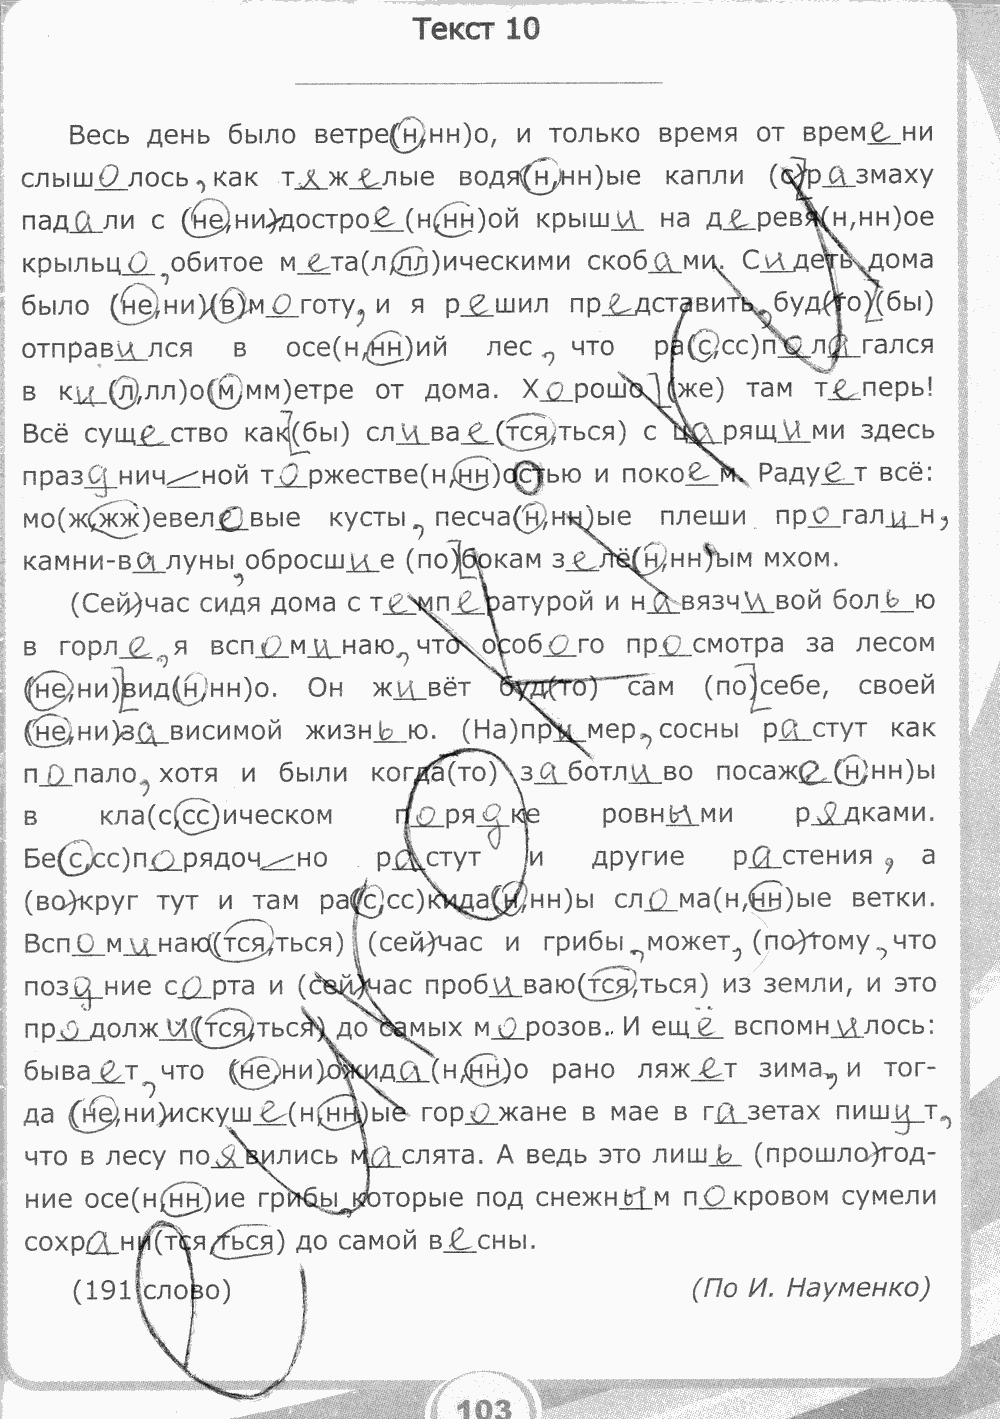 Текст 10
Весь день было ветре(н,нн)о, и только время от времени
слышолось, как тяжелые водя(н,нн)ые капли (с)размаху
падали с (не,ни)достросе(н,нн)ой крыши на деревя(н,нн)ое
крыльцо, обитое мета(л,лл)ическими скобами. Сидеть дома
было (не,ни)(в)моготу, и я решил представить, буд(то)(бы)
отправился в осе(н,нн)ий лес, что ра(с,сс)полагался
в ки(л,лл)о(м,мм)етре от дома. Хорошо (же) там теперь!
Всё существо как(бы) сливае(тся,ться) с царящими здесь
праздничной торжестве(н,нн)остью и покоем. Радует всё:
мо(ж,жж)евеловые кусты, песча(н,нн)ые плеши прогалин,
камни-валуны, обросшие (по)бокам зелё(н,нн)ым мхом.
(Сей)час сидя дома с температурой и навязчивой болью
в горле, я вспоминаю, что особого просмотра за лесом
(не,ни)вид(н,нн)о. Он живёт буд(то) сам (по)себе, своей
(не,ни)зависимой жизнью. (На)пример, сосны растут как
попало, хотя и были когда(то) заботливо посаже(н,нн)ы
в кла(с,сс)ическом порядке ровными рядками.
Бе(с,сс)порядочно растут и другие растения, а
(во)круг тут и там ра(с,сс)кида(н,нн)ы слома(н,нн)ые ветки.
Вспоминаю(тся,ться) (сей)час и грибы, может, (по)тому, что
поздние сорта и (сей)час пробиваю(тся,ться) из земли, и это
продолжи(тся,ться) до самых морозов. И ещё вспомнилось:
бывает, что (не,ни)ожида(н,нн)о рано ляжет зима, и тог-
да (не,ни)искуше(н,нн)ые горожане в мае в газетах пишут,
что в лесу появились маслята. А ведь это лишь (прошло)год-
ние осе(н,нн)ие грибы, которые под снежным покровом сумели
сохрани(тся,ться) до самой весны.
(191 слово) (По И. Науменко)
103